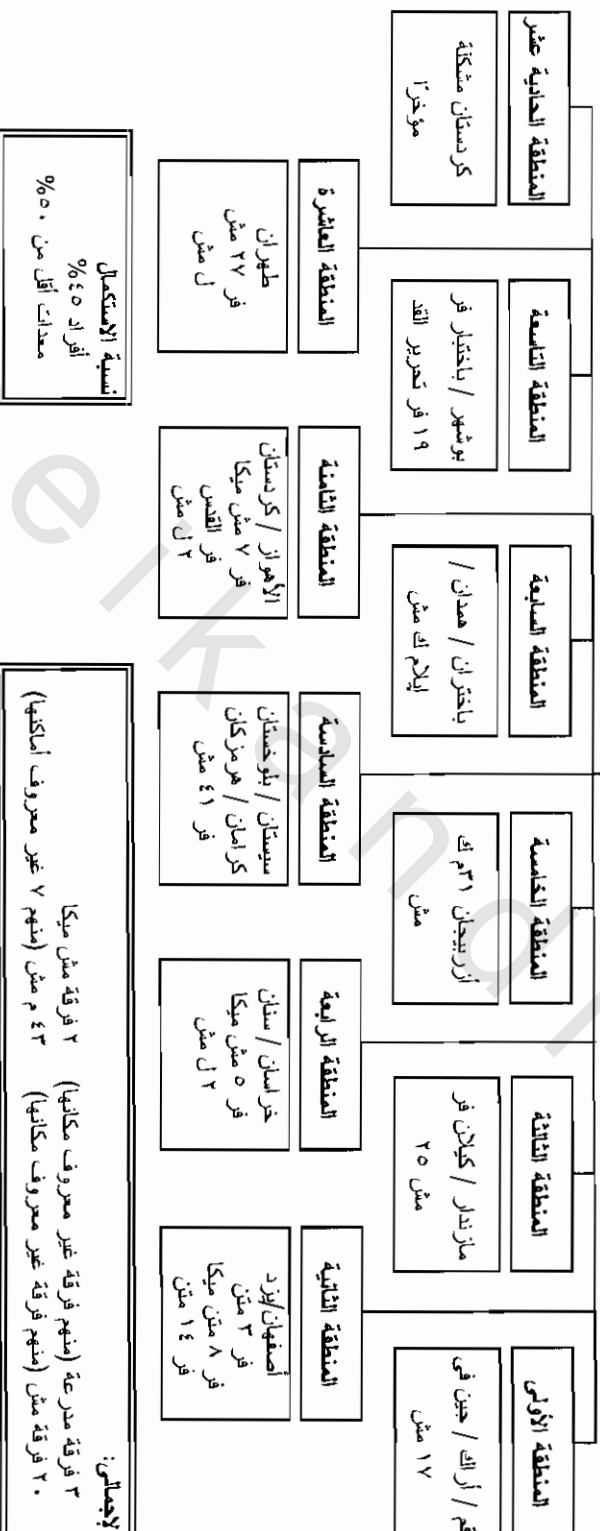 المنطقة الأولى
قم / أراك / جين فى
١٧ مش
المنطقة الثانية
أصفهان/يزد
فر ٣ متن
فر ٨ متن ميكا
فر ١٤ متن
المنطقة الثالثة
مازندار / كيلان فر
مش ٢٥
المنطقة الرابعة
خراسان / سنان
فر ٥ مش ميكا
٢ ل مش
المنطقة الخامسة
أزربيجان ٣١م ك
مش
المنطقة السادسة
سيستان / بلوخستان
كرامان / هرمزكان
فر ٤١ مش
المنطقة السابعة
باختران / همدان /
إيلام ك مش
المنطقة الثامنة
الأهواز / كردستان
فر ٧ مش ميكا
فر القدس
٢ ل مش
المنطقة التاسعة
بوشهر / باختيار فر
١٩ فر تحرير القد
المنطقة العاشرة
طهران
فر ٢٧ مش
ل مش
المنطقة الحادية عشر
كردستان مشكلة
مؤخرًا
لإجمالى:
٣ فرقة مدرعة (منهم فرقة غير معروف مكانها) ٢ فرقة مش ميكا
٢٠ فرقة مش (منهم فرقة غير معروف مكانها) ٤٣ م مش (منهم ٧ غير معروف أماكنها)
نسبة الاستكمال
أفراد ٤٥%
معدات أقل من ٥٠%
eikandl